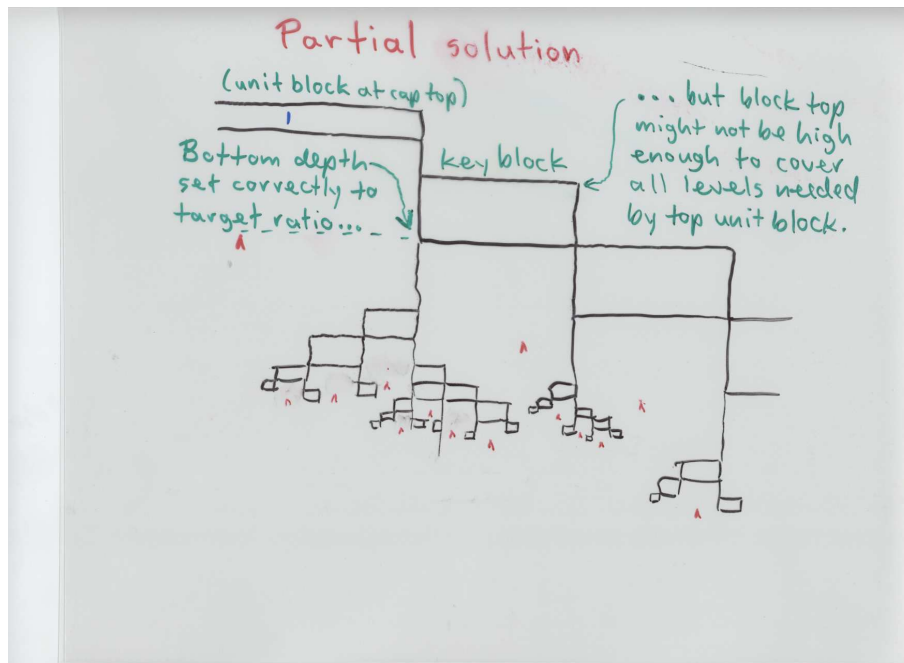 Partial solution
(unit block at cap top)
1
Bottom depth
set correctly to
target ratio...
key block
... but block top
might not be high
enough to cover
all levels needed
by top unit block.